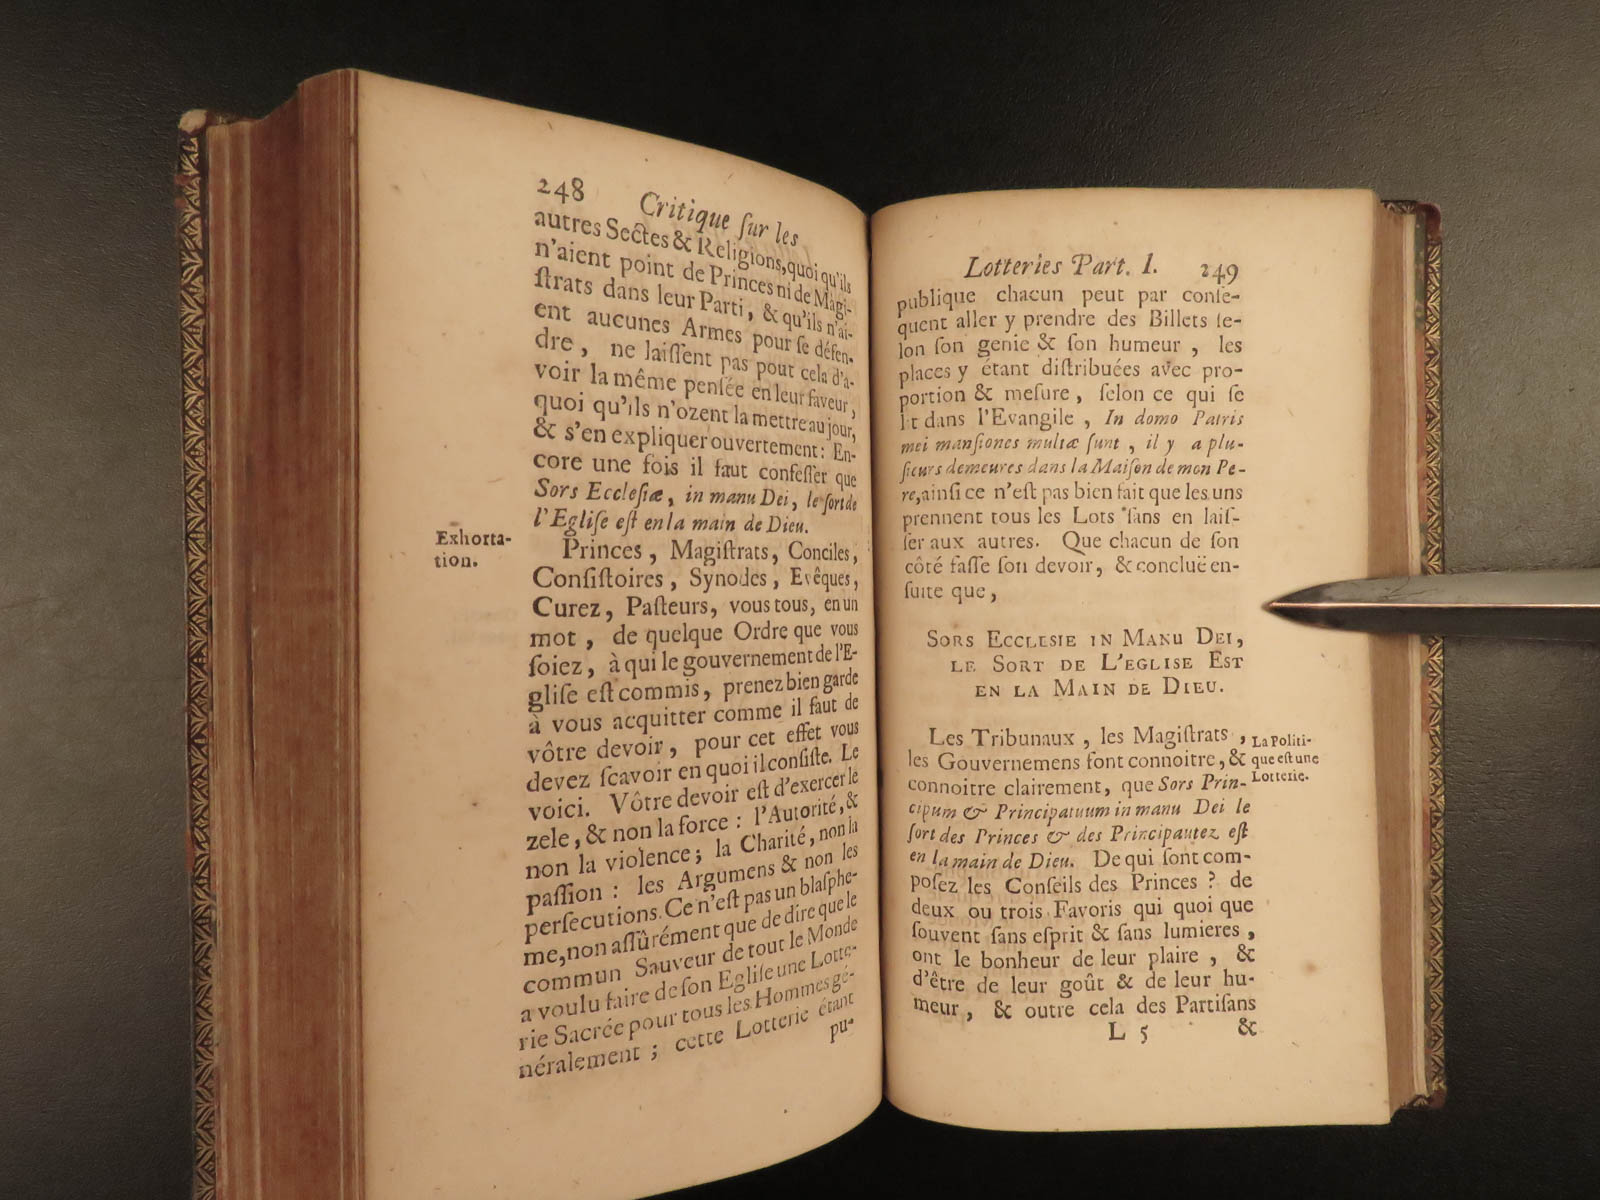 248 Critique ſur les
autres Sectes & Religions, quoi qu'ils
n'aient point de Princes ni de Magi-
ſtrats dans leur Parti, & qu'ils n'ai-
ent aucunes Armes pour ſe défen-
dre, ne laiſſent pas pout cela d'a-
voir la même penſée en leur faveur,
quoi qu'ils n'ozent la mettre au jour,
& s'en expliquer ouvertement: En-
core une fois il faut confeſſer que
Sors Eccleſiæ, in manu Dei, le ſort de
l'Egliſe eſt en la main de Dieu.
Exhorta-
tion.
Princes, Magiſtrats, Conciles,
Conſiſtoires, Synodes, Evêques,
Curez, Paſteurs, vous tous, en un
mot, de quelque Ordre que vous
ſoiez, à qui le gouvernement de l'E-
gliſe eſt commis, prenez bien garde
à vous acquitter comme il faut de
vôtre devoir, pour cet effet vous
devez ſcavoir en quoi il conſiſte. Le
voici. Vôtre devoir eſt d'exercer le
zele, & non la force: l'Autorité, &
non la violence; la Charité, non la
paſſion: les Argumens & non les
perſecutions. Ce n'eſt pas un blaſphe-
me, non aſſûrément que de dire que le
commun Sauveur de tout le Monde
a voulu faire de ſon Egliſe une Lotte-
rie Sacrée pour tous les Hommes gé-
néralement; cette Lotterie étant
pu-
Lotteries Part. I. 249
publique chacun peut par conſe-
quent aller y prendre des Billets ſe-
lon ſon genie & ſon humeur, les
places y étant diſtribuées avec pro-
portion & meſure, ſelon ce qui ſe
lit dans l'Evangile, In domo Patris
mei manſiones multæ ſunt, il y a plu-
ſieurs demeures dans la Maiſon de mon Pe-
re, ainſi ce n'eſt pas bien fait que les uns
prennent tous les Lots ſans en laiſ-
ſer aux autres. Que chacun de ſon
côté faſſe ſon devoir, & concluë en-
ſuite que,
SORS ECCLESIE IN MANU DEI,
LE SORT DE L'EGLISE EST
EN LA MAIN DE DIEU.
Les Tribunaux, les Magiſtrats,
les Gouvernemens font connoitre, &
connoitre clairement, que Sors Prin-
cipum & Principatuum in manu Dei le
ſort des Princes & des Principautez eſt
en la main de Dieu. De qui ſont com-
poſez les Conſeils des Princes? de
deux ou trois Favoris qui quoi que
ſouvent ſans eſprit & ſans lumieres,
ont le bonheur de leur plaire, &
d'être de leur goût & de leur hu-
meur, & outre cela des Partiſans
La Politi-
que eſt une
Lotterie.
L 5 &